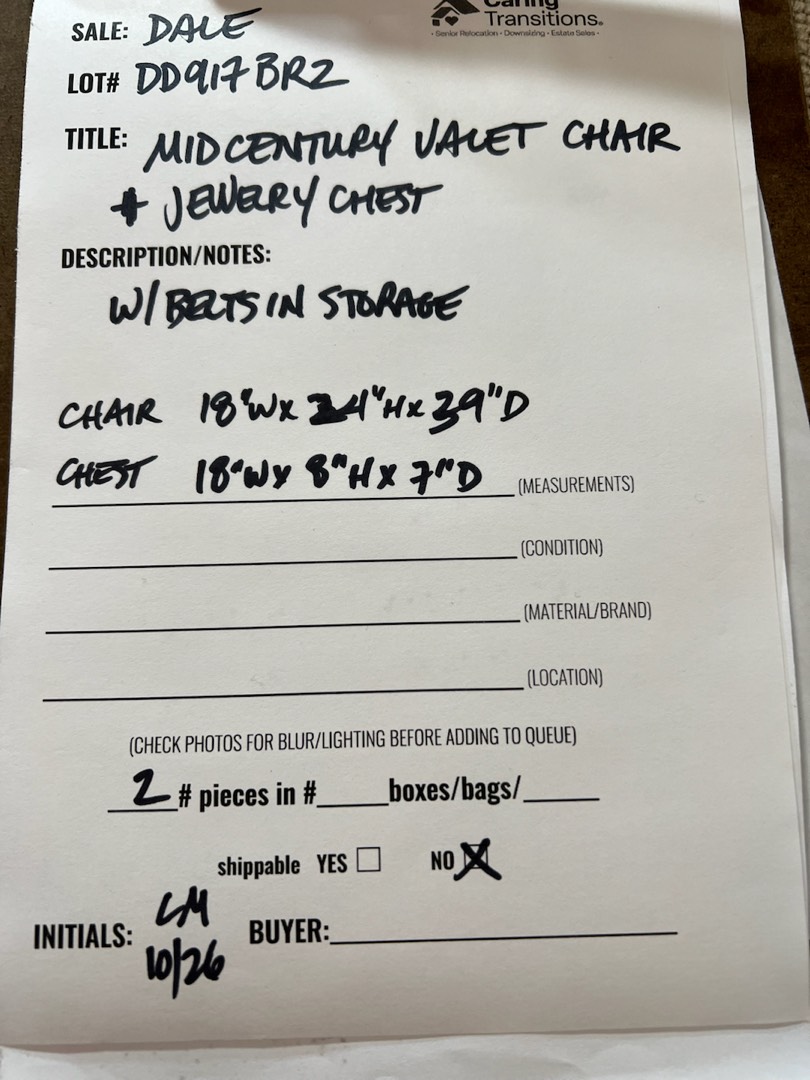 Caring
Transitions®
• Senior Relocation • Downsizing • Estate Sales •
SALE: DALE
LOT# DD917BR2
TITLE: MIDCENTURY VALET CHAIR
+ JEWELRY CHEST
DESCRIPTION/NOTES:
W/BELTS IN STORAGE
CHAIR 18"W x 24"H x 39"D
CHEST 18"W x 8"H x 7"D (MEASUREMENTS)
(CONDITION)
(MATERIAL/BRAND)
(LOCATION)
(CHECK PHOTOS FOR BLUR/LIGHTING BEFORE ADDING TO QUEUE)
2 # pieces in #____boxes/bags/____
shippable YES ☐ NO ☒
INITIALS: LM BUYER:____
10/26